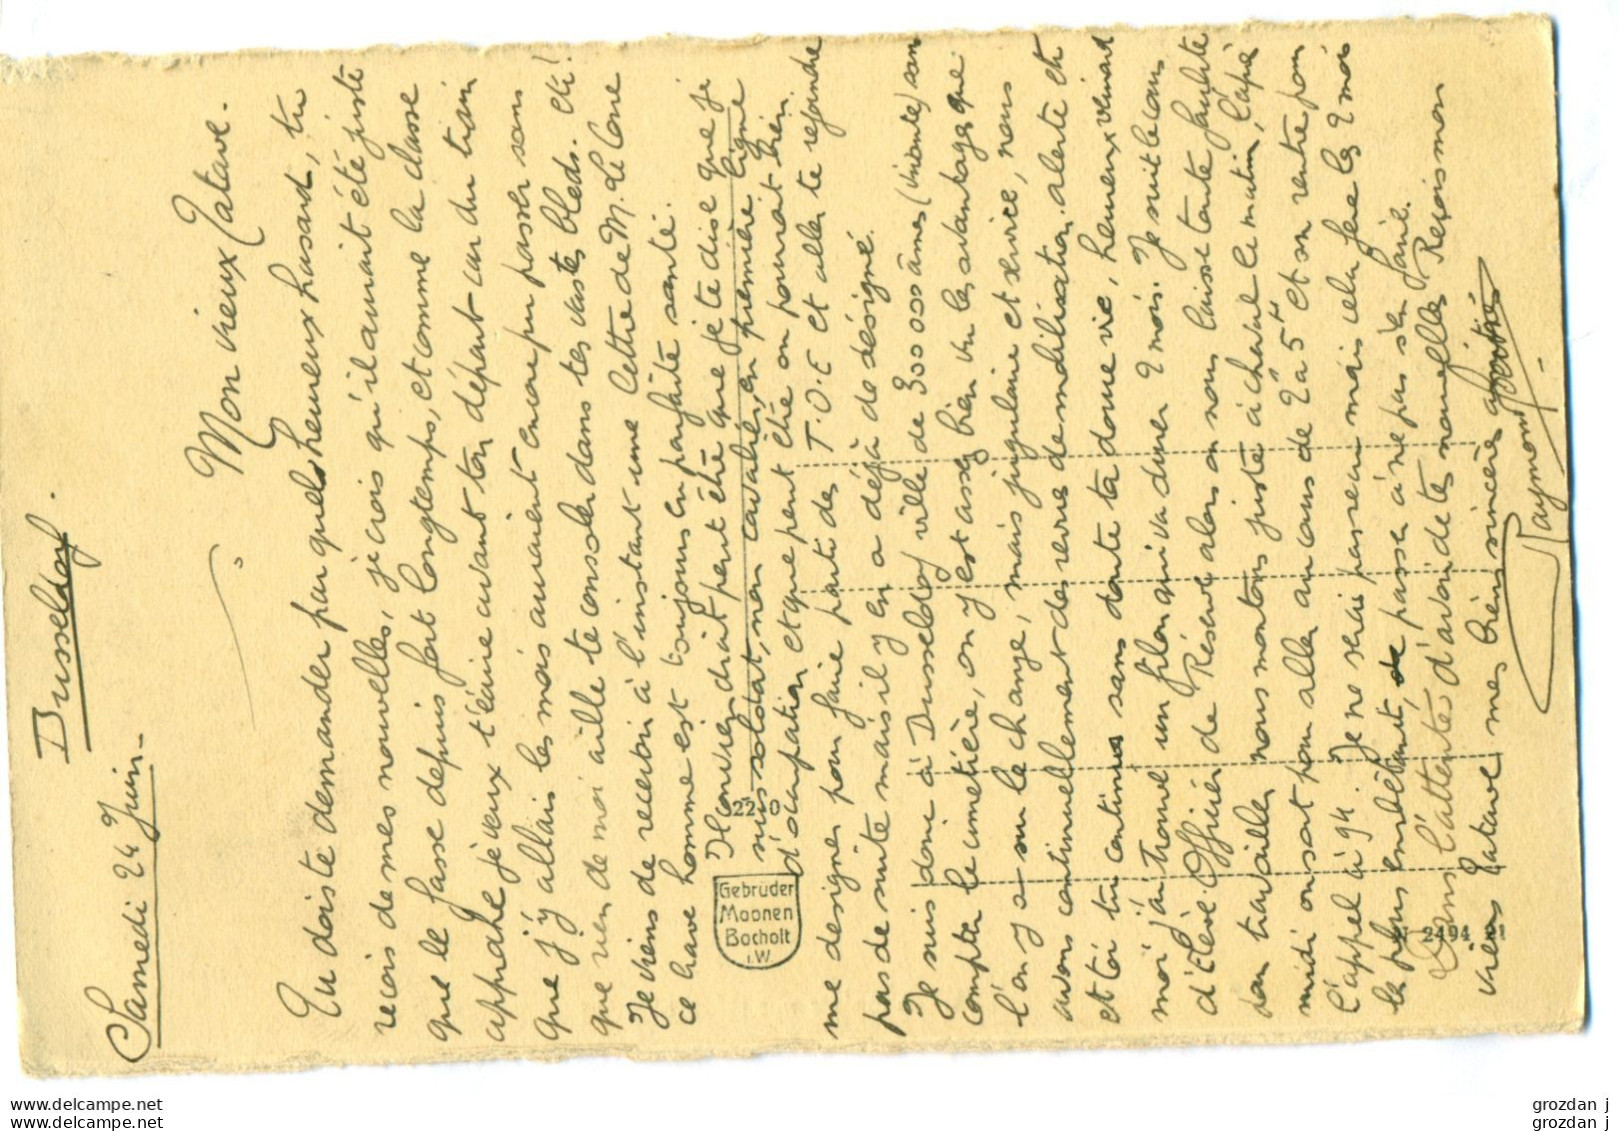 Dusseldorf.
Samedi 24 Juin.
Mon vieux Tatave.
Tu dois te demander par quels heureux hasard, tu
recois de mes nouvelles, je crois qu'il aurait été juste
que le fasse depuis fort longtemps, et comme la classe
approche je veux t'écrire avant ton départ car du train
que j'y allais les mois auraient encore pu passer sans
que rien de moi aille te consoler dans tes vastes bleds. etc!
Je viens de recevoir à l'instant une lettre de M. Le
ce brave homme est toujours en parfaite santé.
Il voudrait peut être que je te dise que je
suis soldat, non cavalier, en première ligne
d'occupation et que peut être on pourrait bien
me désigner pour faire parti des T.O.E et aller te rejoindre
pas de suite mais il y en a déjà de désigné.
Je suis donc à Dusseldorf ville de 300 000 âmes (vivantes) sans
compter le cimetière, on y est assez bien vu les avantages que
l'on y a sur le change, mais jugulaire et service, nous
avons continuellement des revues de mobilisation, alerte et
et toi tu continues sans doute ta douce vie, heureux veinard
moi j'ai trouvé un filon qui va durer 2 mois. Je suit le cours
d'Elève Officier de Réserve alors on nous laisse toute faculté
pour travailler nous montons juste à cheval le matin, l'après
midi on sort pour aller au cours de 2 à 5h et on rentre pour
l'appel à 9h. Je ne serai pas reçu mais cela fera les 2 mois
le plus embêtant, de passer à ne pas s'en faire.
Dans l'attente d'avoir de tes nouvelles Reçois mon
vieux Tatave mes bien sincères amitiés
Raymond
3220
Gebrüder
Moonen
Bocholt
i.W
2494
www.delcampe.net
grozdan j
www.delcampe.net
grozdan j